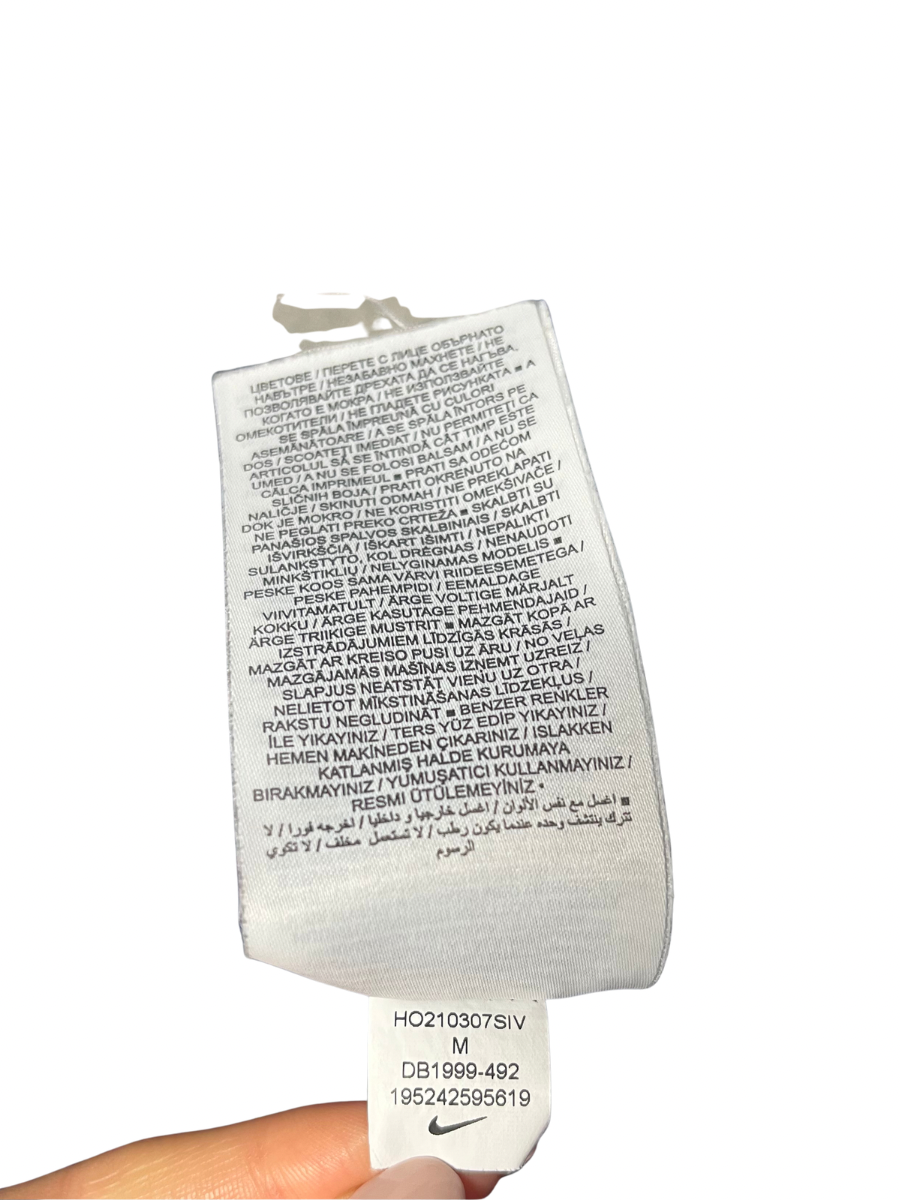 ЦВЕТОВЕ / ПЕРЕТЕ С ЛИЦЕ ОБЪРНАТО
НАВЪТРЕ / НЕЗАБАВНО МАХНЕТЕ / НЕ
ПОЗВОЛЯВАЙТЕ ДРЕХАТА ДА СЕ НАГЪВА,
КОГАТО Е МОКРА / НЕ ИЗПОЛЗВАЙТЕ
ОМЕКОТИТЕЛИ / НЕ ГЛАДЕТЕ РИСУНКАТА ■ A
SE SPĂLA ÎMPREUNĂ CU CULORI
ASEMĂNATOARE / A SE SPĂLA ÎNTORS PE
DOS / SCOATEȚI IMEDIAT / NU PERMITEȚI CA
ARTICOLUL SĂ SE ÎNTINDĂ CÂT TIMP ESTE
UMED / A NU SE FOLOSI BALSAM / A NU SE
CĂLCA IMPRIMEUL ■ PRATI SA ODEĆOM
SLIČNIH BOJA / PRATI OKRENUTO NA
NALIČJE / SKINUTI ODMAH / NE PREKLAPATI
DOK JE MOKRO / NE KORISTITI OMEKŠIVAČE /
NE PEGLATI PREKO CRTEŽA ■ SKALBTI SU
PANAŠIOS SPALVOS SKALBINIAIS / SKALBTI
IŠVIRKŠČIĄ / IŠKART IŠIMTI / NEPALIKTI
SULANKSTYTO, KOL DRĖGNAS / NENAUDOTI
MINKŠTIKLIŲ / NELYGINAMAS MODELIS ■
PESKE KOOS SAMA VÄRVI RIIDEESEMETEGA /
PESKE PAHEMPIDI / EEMALDAGE
VIIVITAMATULT / ÄRGE VOLTIGE MÄRJALT
KOKKU / ÄRGE KASUTAGE PEHMENDAJAID /
ÄRGE TRIIKIGE MUSTRIT ■ MAZGĀT KOPĀ AR
IZSTRĀDĀJUMIEM LĪDZĪGĀS KRĀSĀS /
MAZGĀT AR KREISO PUSI UZ ĀRU / NO VEĻAS
MAZGĀJAMĀS MAŠĪNAS IZŅEMT UZREIZ /
SLAPJUS NEATSTĀT VIENU UZ OTRA /
NELIETOT MĪKSTINĀŠANAS LĪDZEKĻUS /
RAKSTU NEGLUDINĀT ■ BENZER RENKLER
İLE YIKAYINIZ / TERS YÜZ EDIP YIKAYINIZ /
HEMEN MAKİNEDEN ÇIKARINIZ / ISLAKKEN
KATLANMIŞ HALDE KURUMAYA
BIRAKMAYINIZ / YUMUŞATICI KULLANMAYINIZ /
RESMI ÜTÜLEMEYİNİZ •
■ اغسل مع نفس الألوان / اغسل خارجيا و داخليا / اخرجه فورا / لا
تترك ينتشف وحده عندما يكون رطب / لا تستعمل مخلف / لا تكوي
الرسوم
HO210307SIV
M
DB1999-492
195242595619